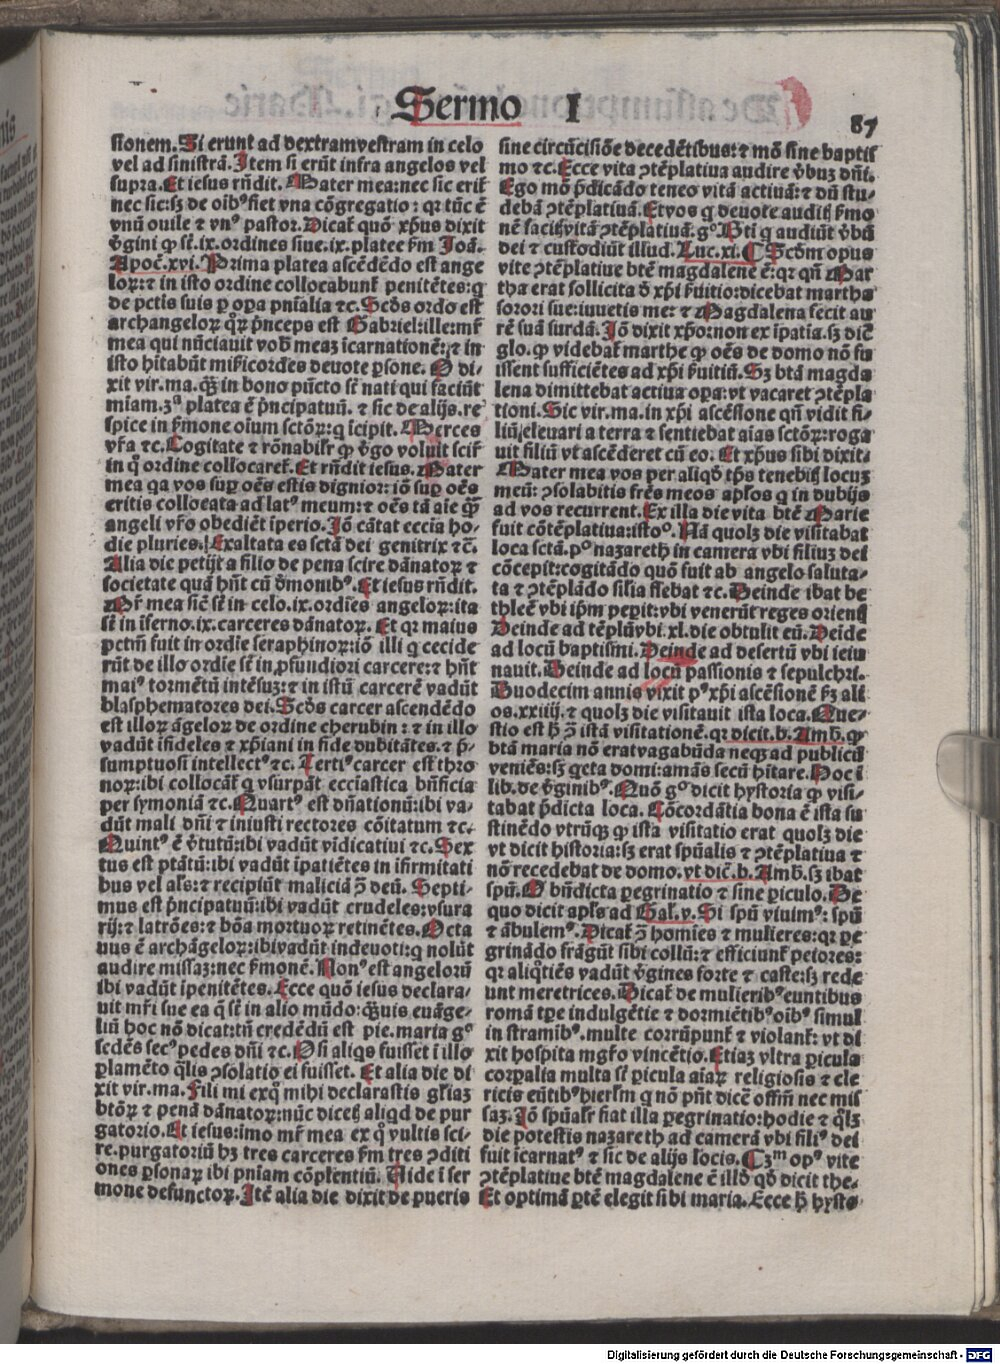 Sermo I
87
sionem. Si erunt ad dextram vestram in celo
vel ad sinistrã. Item si erũt infra angelos vel
supra. Et iesus rñdit. Mater mea: nec sic erit
nec sic: sꝫ de oibꝰ fiet vna cõgregatio: qꝛ tũc ẽ
vnũ ouile ⁊ vnꝰ pastor. Dicat̃ quõ xp̃us dixit
ṽgini ꝙ st̃ .ix. ordines siue .ix. platee ẽm Joã.
Apoc̃. xvi. Prima platea ascẽdẽdo est ange
loꝝ: ⁊ in isto ordine collocabunt̃ penitẽtes: q̃
de pctis suis ꝑ oꝑa pñialia ⁊c. Scõs ordo est
archangeloꝝ q̃ꝝ p̃nceps est Gabriel: ille: mr̃
mea qui nũciauit vob̃ meaꝫ ĩcarnationẽ: ⁊ in
isto hĩtabũt mĩsericordes deuote ꝑsone. O di-
xit vir. ma. q̃ꝫ in bono pũcto st̃ nati qui faciũt
miam. 3ᵃ platea ẽ p̃ncipatuũ. ⁊ sic de alijs. re
spice in s̃mone oĩum sctõꝝ: q̃ ĩcipit. Merces
vr̃a ⁊c. Cogitate ⁊ rõnabilr̃ ꝙ ṽgo voluit scir̃
in q̃ ordine collocaret̃. Et rñdit iesus. Mater
mea qa vos suꝑ oẽs estis dignior: iõ suꝑ oẽs
eritis collocata ad latꝰ meum: ⁊ oẽs tã aie q̃ꝫ
angeli vr̃o obediẽt ĩperio. Jõ cãtat ecc̃ia ho-
die pluries. Exaltata es sctã dei genitrix ⁊c̃.
Alia die petijt a filio de pena scire dãnatoꝝ ⁊
societate quã hñt cũ dẽmonibꝰ. Et iesus rñdit.
Mr̃ mea sic̃ st̃ in celo .ix. ordĩes angeloꝝ: ita
st̃ in ĩferno .ix. carceres dãnatoꝝ. Et qꝛ maius
pctm̃ fuit in ordĩe seraphinoꝝ: iõ illi q̃ cecide
rũt de illo ordĩe st̃ in ꝓfundiori carcere: ⁊ hñt
maiꝰ tormẽtũ intẽsuꝫ: ⁊ in istũ carcerẽ vadũt
blasphematores dei. Scõs carcer ascendẽdo
est illoꝝ ãgeloꝝ de ordine cherubin: ⁊ in illo
vadũt ĩfideles ⁊ xp̃iani in fide dubitãtes. ⁊ p̃-
sumptuosi intellectꝰ ⁊c. Tertiꝰ carcer est thro
noꝝ: ibi collocãt̃ q̃ vsurpãt ecc̃iastica bñficia
per symoniã ⁊c. Quartꝰ est dñationũ: ibi va-
dũt mali dñi ⁊ iniusti rectores cõitatum ⁊c.
Quintꝰ ẽ ṽtutũ: ibi vadũt vĩdicatiui ⁊c. Sex
tus est ptãtũ: ibi vadũt ĩpatiẽtes in ĩfirmitati
bus vel als̃: ⁊ recipiũt maliciã ɔ̃ deũ. Septi-
mus est p̃ncipatuũ: ibi vadũt crudeles: vsura
rij: ⁊ latrões: ⁊ bõa mortuoꝝ retinẽtes. Octa
uus ẽ archãgeloꝝ: ibi vadũt indeuoti: q̃ nolũt
audire missaꝫ: nec s̃monẽ. Nonꝰ est angelorũ
ibi vadũt ĩpenitẽtes. Ecce quõ iesus declara-
uit mr̃i sue ea q̃ st̃ in alio mũdo: q̃uis euãge-
liũ hoc nõ dicat: tñ credẽdũ est pie. maria g°
sedẽs secꝰ pedes dñi ⁊c. O si aliqs fuisset ĩ illo
ꝑlamẽto q̃lis ɔsolatio ei fuisset. Et alia die di
xit vir. ma. Fili mi exq̃ mihi declarastis gl̃iaꝫ
btõꝝ ⁊ penã dãnatoꝝ: nũc dicetꝭ aliqd de pur
gatorio. Et iesus: ĩmo mr̃ mea ex q̃ vultis sci-
re. purgatoriũ hꝫ tres carceres ẽm tres ɔditi
ones ꝑsonaꝝ ibi pñiam cõplentiũ. Vide ĩ ser
mone defunctoꝝ. Itẽ alia die dixit de pueris
sine circũcisiõe decedẽtibus: ⁊ mõ sine baptis
mo ⁊c. Ecce vita ɔtẽplatiua audire ṽbuꝫ dñi.
Ego mõ p̃dicãdo teneo vitã actiuã: ⁊ dũ stu-
debã ɔtẽplatiuã. Et vos q̃ deuote auditꝭ s̃mo
nẽ facitꝭ vitã ɔtẽplatiuã. g° Bti q̃ audiũt ṽbũ
dei ⁊ custodiũt illud. Luc. xi. ¶ Scõm opus
vite ɔtẽplatiue btẽ magdalene ẽ: qꝛ qñ Mar
tha erat sollicita d̃ xp̃i s̃uitio: dicebat martha
sorori sue: iuuetis me: ⁊ Magdalena fecit au
rẽ suã surdã. Jõ dixit xp̃o: non ex ĩpatia. sꝫ dic̃
glo. ꝙ videbat̃ marthe ꝙ oẽs de domo nõ fu
issent sufficiẽtes ad xp̃i s̃uitiũ. Sꝫ btã magda
lena dimittebat actiua oꝑa: vt vacaret ɔtẽpla
tioni. Sic vir. ma. in xp̃i ascẽsione qñ vidit fi-
liũ eleuari a terra ⁊ sentiebat aĩas sctõꝝ: roga
uit filiũ vt ascẽderet cũ eo. Et xp̃us sibi dixit.
Mater mea vos per aliqd̃ tp̃s tenebitꝭ locuꝫ
meũ: ɔsolabitis fr̃es meos apl̃os q̃ in dubijs
ad vos recurrent. Ex illa die vita btẽ Marie
fuit cõtẽplatiua: isto°. Nã quolꝫ die visitabat
loca sctã. p° nazareth in camera vbi filiuꝫ dei
cõcepit: cogitãdo quõ fuit ab angelo saluta-
ta ⁊ ɔtẽplãdo filia flebat ⁊c. Deinde ibat be
thleẽ vbi ip̃m peꝑit: vbi venerũt reges oriens
Deinde ad tẽplũ vbi .xl. die obtulit eũ. Deĩde
ad locũ baptismi. Deinde ad desertũ vbi ieiu
nauit. Deinde ad locũ passionis ⁊ sepulchri.
Duodecim annis vixit pꝰ xp̃i ascẽsionẽ s̃ꝫ ali
os .xxiiij. ⁊ quolꝫ die visitauit ista loca. Que-
stio est h̃ ɔ̃ istã visitationẽ. qꝛ dicit. b. Amb̃. ꝙ
btã maria nõ erat vagabũda neqꝫ ad publicũ
veniẽs: sꝫ q̃eta domi: amãs secũ hĩtare. Hoc ĩ
lib. de ṽginibꝰ. Quõ g° dicit hystoria ꝙ visi-
tabat p̃dicta loca. Cõcordãtia bona ẽ ista su
stinẽdo vtrũqꝫ ꝙ ista visitatio erat quolꝫ die
vt dicit historia: sꝫ erat spũalis ⁊ ɔtẽplatiua ⁊
nõ recedebat de domo. vt dic̃. b. Amb̃. sꝫ ibat
spũ. O bñdicta ꝑegrinatio ⁊ sine ꝑiculo. De
quo dicit apl̃s ad Gal̃. v. Si spũ viuimꝰ: spũ
⁊ ãbulemꝰ. Dicat̃ ɔ̃ homĩes ⁊ mulieres: qꝛ ꝑe
grinãdo frãgũt sibi collũ: ⁊ efficiunt̃ peiores:
qꝛ aliq̃tiẽs vadũt ṽgines forte ⁊ caste: sꝫ rede
unt meretrices. Dicat̃ de mulieribꝰ euntibus
romã tꝑe indulgẽtie ⁊ dormiẽtibꝰ oĩbꝰ simul
in stramibꝰ. multe corrũpunt̃ ⁊ violant̃: vt di
xit hospita mgr̃o vincẽtio. Etiaꝫ vltra ꝑicula
corꝑalia multa st̃ ꝑicula aĩaꝝ religiosis ⁊ cle
ricis eũtibꝰ hierl̃m q̃ nõ pñt dicẽ offm̃ nec mis
saꝫ. Jõ spũalr̃ fiat illa ꝑegrinatio: hodie ⁊ q̃lꝫ
die potestis nazareth ad camerã vbi filiꝰ dei
fuit ĩcarnatꝰ ⁊ sic de alijs locis. ¶ 3ᵐ opꝰ vite
ɔtẽplatiue btẽ magdalene ẽ illd̃ qd̃ dicit the.
Et optimã ꝑtẽ elegit sibi maria. Ecce h̃ hysto
Digitalisierung gefördert durch die Deutsche Forschungsgemeinschaft - DFG